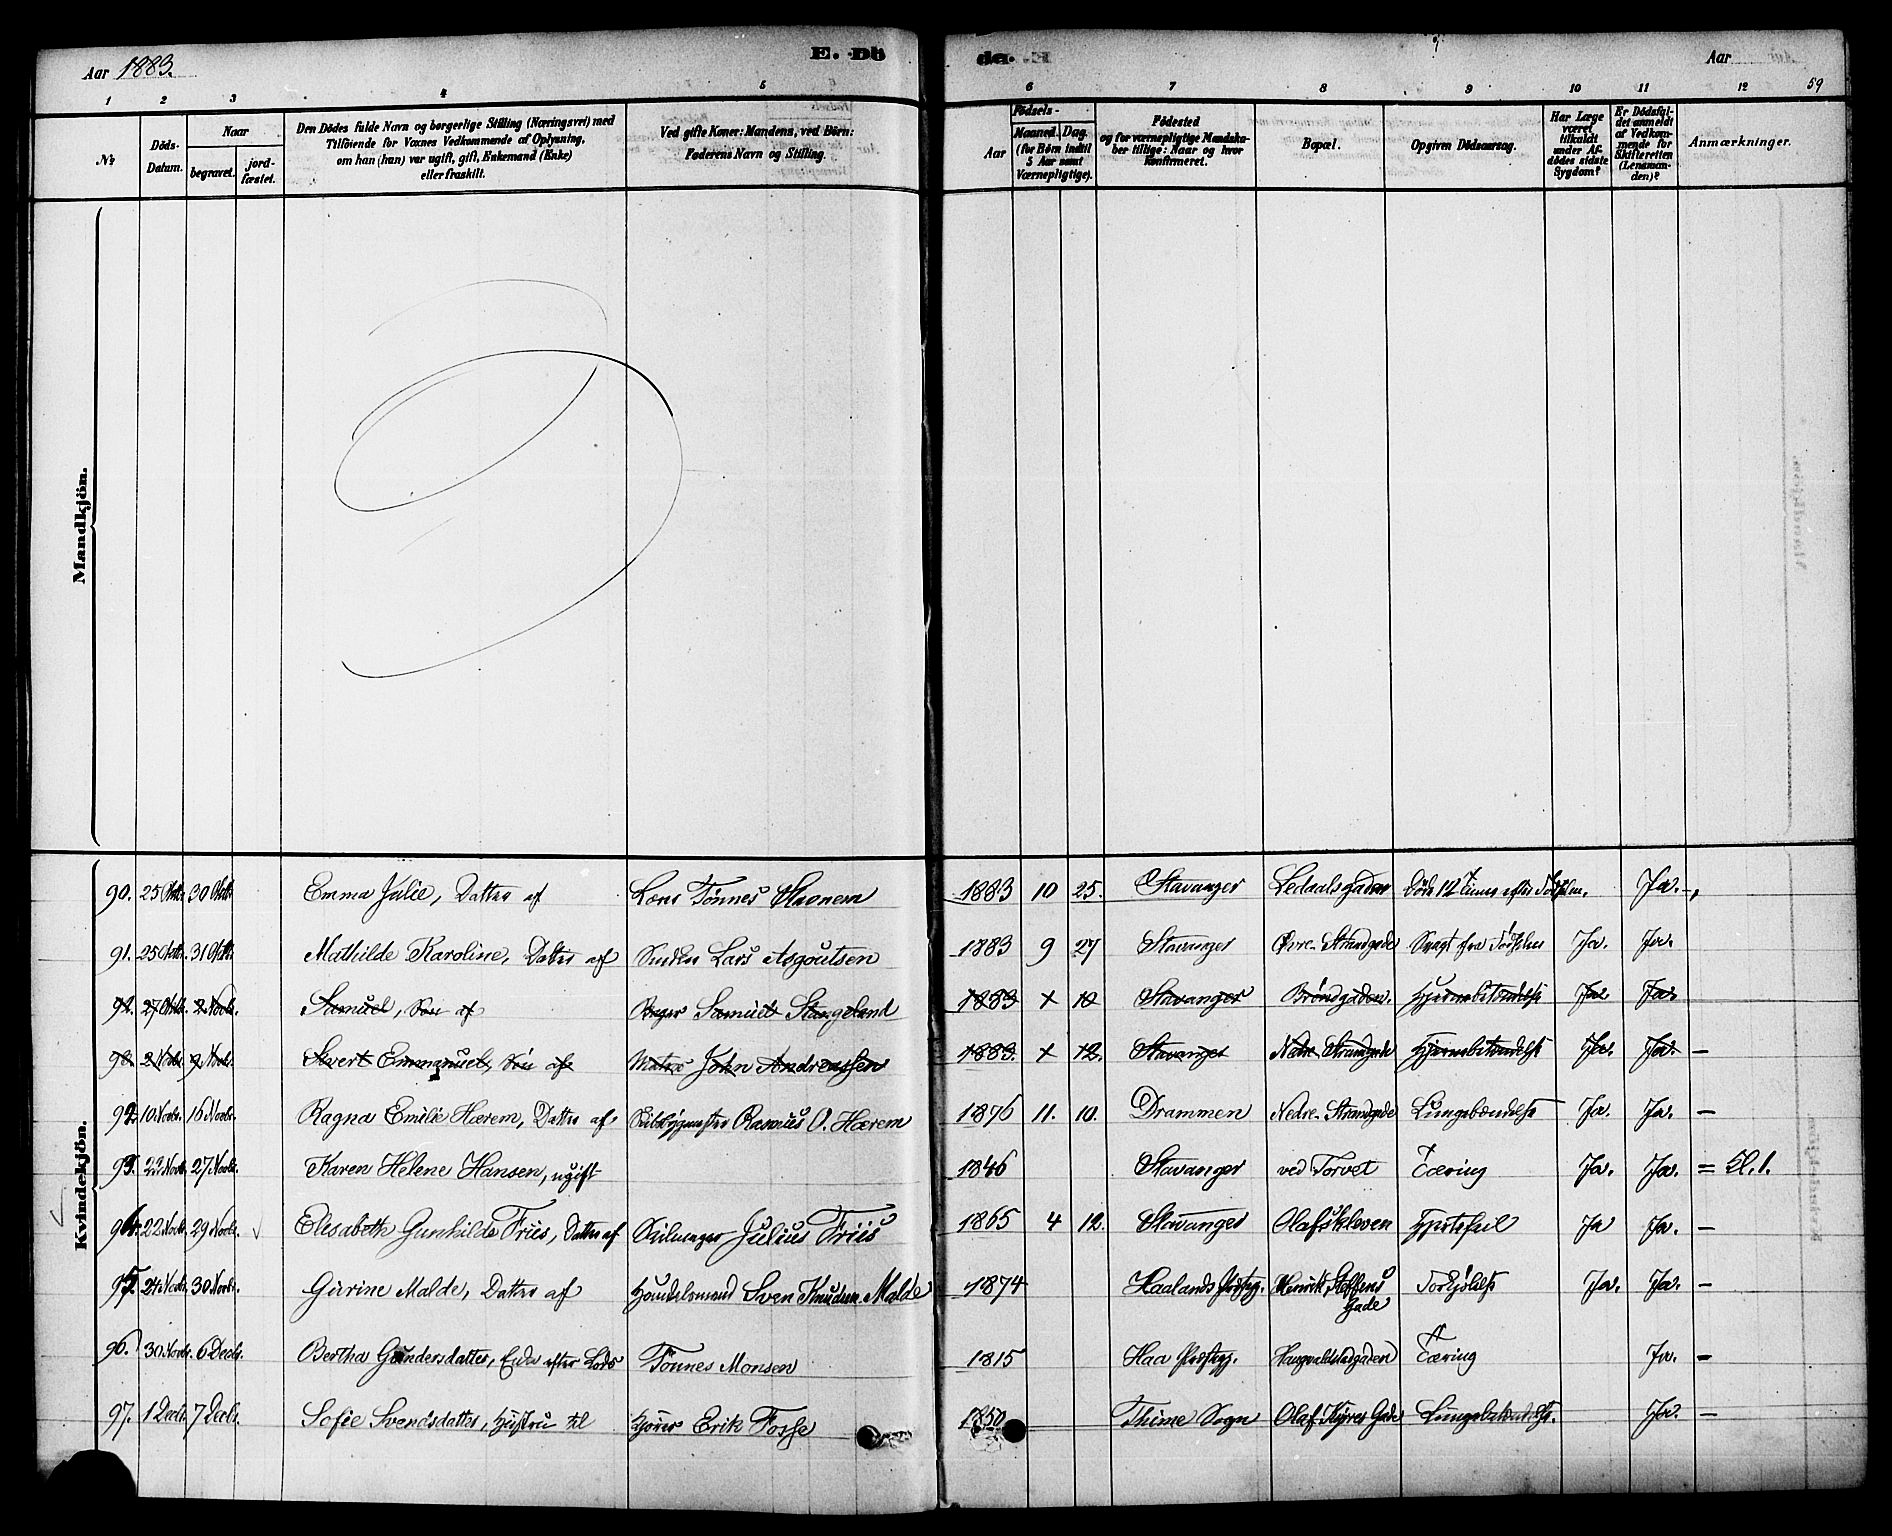 Aar 1883.
E. Dö
de. E.
Aar
59
1 2 3 4 5 6 7 8 9 10 11 12
№
Döds-Datum.
Naar
begravet.
jord-fæstet.
Den Dödes fulde Navn og borgerlige Stilling (Næringsvei) med
Tilföiende for Voxnes Vedkommende af Oplysning,
om han (hun) var ugift, gift, Enkemand (Enke)
eller fraskilt.
Ved gifte Koner: Mandens, ved Börn:
Faderens Navn og Stilling.
Födsels-
Aar
Maaned. Dag.
(for Börn indtil
5 Aar samt
Værnepligtige).
Födested
og for værnepligtige Mandska-
ber tillige: Naar og hvor
Konfirmeret.
Bopæl.
Opgiven Dödsaarsag.
Har Læge
været
tilkaldt
under Af-
dödes sidste
Sygdom?
Er Dödsfal-
det anmeldt
af Vedkom-
mende for
Skifteretten
(Lensman-
den)?
Anmærkninger.
Mandkjön.
Kvindekjön.
90. 25 Oktbr. 30 Oktbr. Emma Julie, Datter af Lars Tönnes 1883 10 25. Stavanger Ledaalsgaden Döde 12 Timer efter Födselen. Ja.
91. 25 Oktbr. 31 Oktbr. Mathilde Karoline, Datter af Lars Asgoutsen 1883 9 27 Stavanger Øvre Strandgade Svagt fra Födselen Ja. Ja.
92. 27 Oktbr. 2 Novbr. Samuel, Sön af Bager Samuel Stangeland 1883 10 Stavanger Bröndgaden. Hjernebetændelse Ja. Ja.
2 Novbr. 9 Novbr. Sivert Emmanuel, Sön af Matros John Andreassen 1883. 12. Stavanger Nedre Strandgade Hjernebetændelse Ja. Ja. –
92. 10 Novbr. 16 Novbr. Ragna Emilie Hærem, Datter af Skibsbygmester Rasmus O. Hærem 1876 11. 10. Drammen Nedre Strandgade Lungebetændelse Ja. Ja. –
93. 22 Novbr. 27 Novbr. Karen Helene Hansen, ugift 1846 Stavanger ved Torvet Tæring Ja. Ja. = Kl. 1.
94. 22 Novbr. 29 Novbr. Elisabeth Gunhilde Friis, Datter af Julius Friis 1865 4 12. Stavanger Olafskleven Hjertefeil Ja Ja. –
95. 24 Novbr. 30 Novbr. Gurine Malde, Datter af Handelsmand Sven Knudsen Malde 1874 Haalands Præstegj. Henrik Steffens Gade Forkjölelse Ja. Ja. –
96. 30 Novbr. 6 Decbr. Bertha Gundersdatter, Enke efter Lods Tönnes Monsen 1815 Haa Præstegj. Haugvaldstadgaden Tæring Ja. –
97. 1 Decbr. 7 Decbr. Sofie Svendsdatter, Hustru til Erik Fosse 1850 Thime Sogn Olaf Kyrres Gade Lungebetændelse. Ja. –